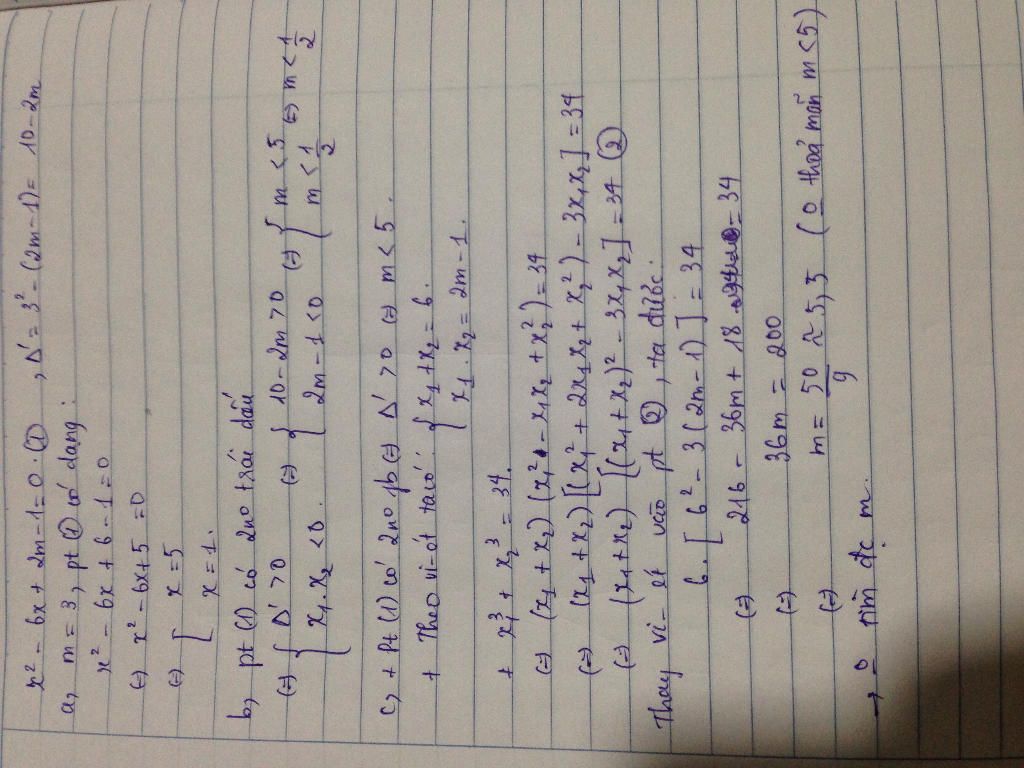 x² − 6x + 2m − 1 = 0. ① , Δ' = 3² − (2m − 1) = 10 − 2m
a, m = 3, pt ① có dạng:
x² − 6x + 6 − 1 = 0
(=) x² − 6x + 5 = 0
(=) [ x = 5
x = 1.
b, pt (1) có 2no trái dấu
(=) { Δ' > 0 (=) { 10 − 2m > 0 (=) { m < 5 (=) m < 1/2
x₁.x₂ < 0. 2m − 1 < 0 m < 1/2
c, + Pt (1) có 2no pb (=) Δ' > 0 (=) m < 5.
+ Theo vi-ét ta có: { x₁ + x₂ = 6.
x₁.x₂ = 2m − 1.
+ x₁³ + x₂³ = 34.
(=) (x₁ + x₂) (x₁² − x₁x₂ + x₂²) = 34
(=) (x₁ + x₂) [(x₁² + 2x₁x₂ + x₂²) − 3x₁x₂] = 34
(=) (x₁ + x₂) [(x₁ + x₂)² − 3x₁x₂] = 34 ②
Thay vi-ét vào pt ②, ta được:
6. [6² − 3(2m − 1)] = 34
(=) 216 − 36m + 18 = 34
(=) 36m = 200
(=) m = 50/9 ≈ 5,5 (o thoả mãn m < 5)
→ o tìm đc m.